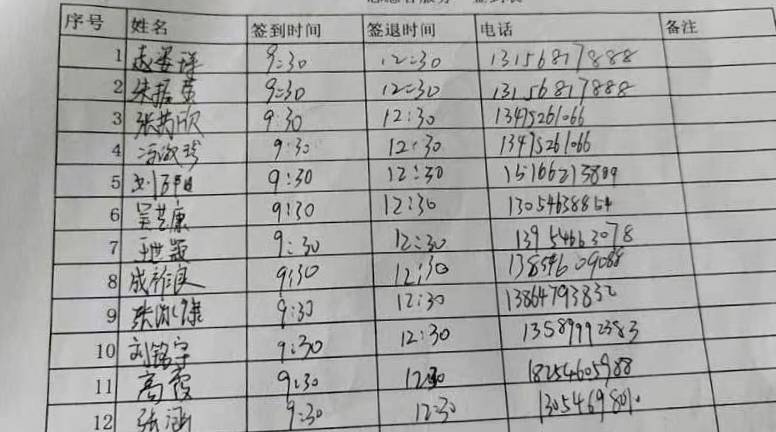 序号 姓名 签到时间 签退时间 电话 备注
1 9:30 12:30 13156817888
2 9:30 12:30 13156817888
3 9:30 12:30 13475261066
4 9:30 12:30 13475261066
5 刘阳 9:30 12:30
6 吴艺康 9:30 12:30 13054638854
7 王世颖 9:30 12:30 13954663078
8 成祚良 9:30 12:30 13854609088
9 9:30 12:30 13864793832
10 刘铭宇 9:30 12:30 13589992383
11 高霞 9:30 12:30 18254605988
12 张涵 9:30 12:30